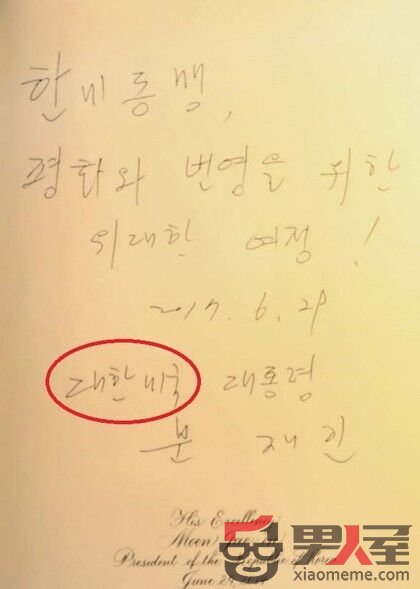 한미동맹,
평화와 번영을 위한
위대한 여정!
2017. 6. 28
대한미국 대통령
문 재 인
His Excellency
Moon Jae-in
President of the Republic of Korea
June 28, 2017
男人屋
xiaomeme.com